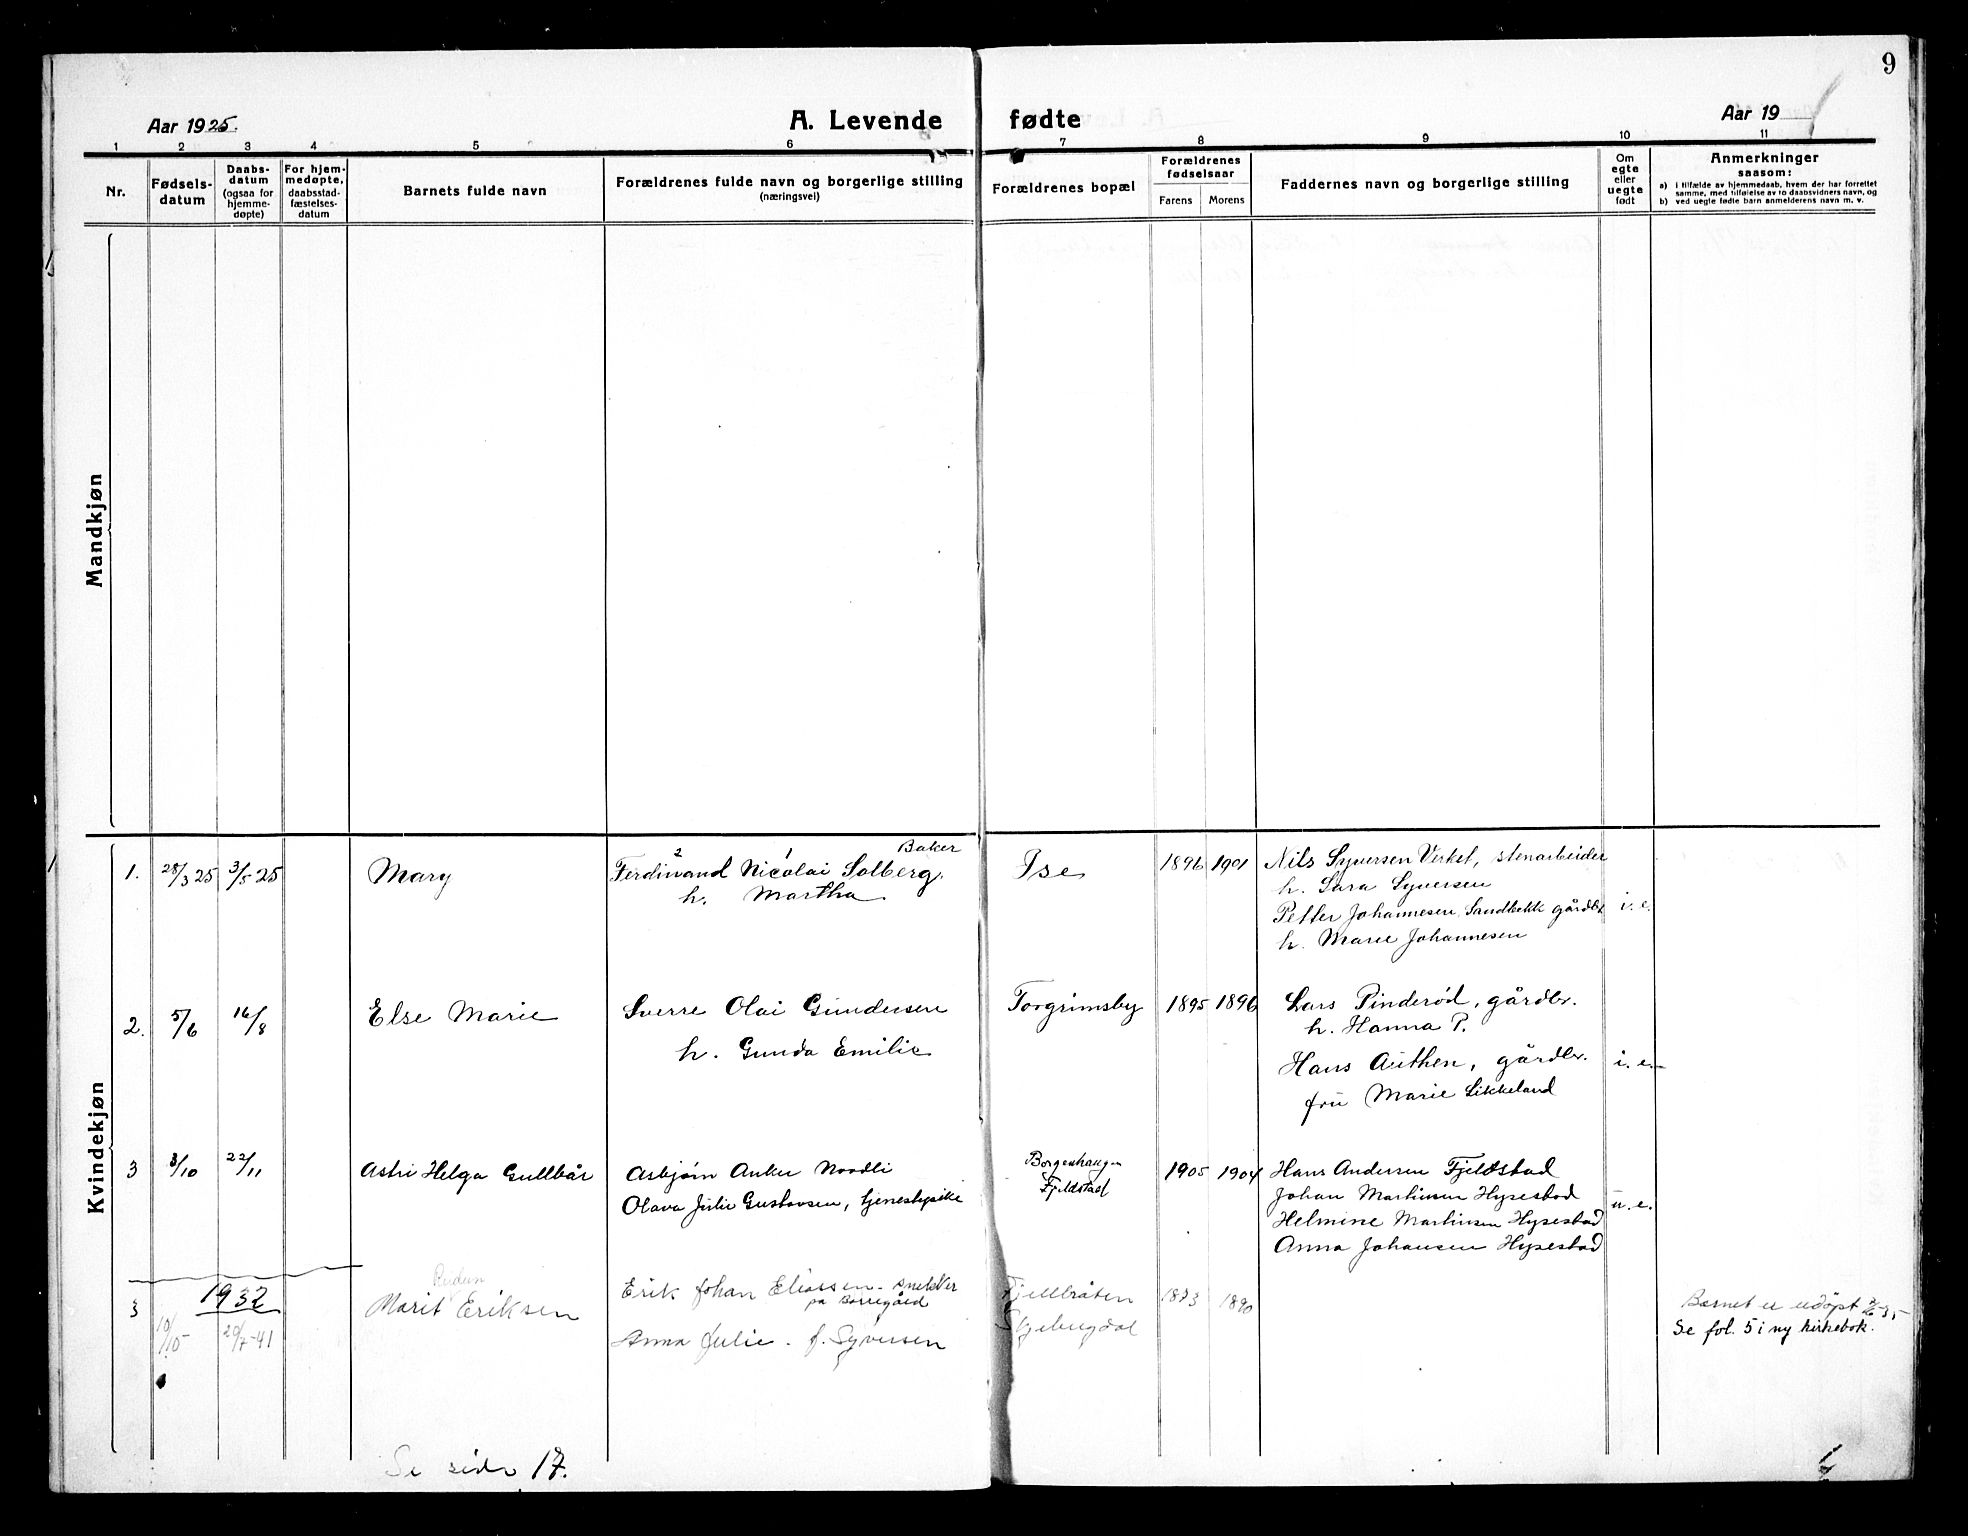 9
Aar 1925.
A. Levende fødte
Aar 19
1 2 3 4 5 6 7 8 9 10 11
Nr.
Fødselsdatum
Daabsdatum (ogsaa for hjemmedøpte)
For hjemmedøpte, daabsstadfæstelsesdatum
Barnets fulde navn
Forældrenes fulde navn og borgerlige stilling
(næringsvei)
Forældrenes bopæl
Forældrenes fødselsaar
Farens Morens
Faddernes navn og borgerlige stilling
Om egte eller uegte født
Anmerkninger
saasom:
a) i tilfælde av hjemmedaab, hvem der har forrettet
samme, med tilføielse av to daabsvidners navn, og
b) ved uegte fødte barn anmelderens navn m. v.
Mandkjøn
Kvindekjøn
1. 28/3 25 3/5 25 Mary
2 1 Baker
Ferdinand Nicolai Solberg.
h. Martha
Ise 1896 1901
Nils Syversen Verket, stenarbeider
h. Sara Syversen
Petter Johannesen Sandbekk gårdbr
h. Marie Johannesen
i. e.
2. 5/6 16/8 Else Marie
Sverre Olai Gundersen
h. Gunda Emilie
Torgrimsby 1895 1896
Lars Pinderød, gårdbr.
h. Hanna P.
Hans Authen, gårdbr.
fru Marie Likkeland
i. e.
3 3/10 22/11 Astri Helga Gullbår
Asbjørn Anker Noodli
Olava Julie Gustavsen, tjenestepike
Borgenhaugen
Fjeldstad
1905 1904
Hans Andersen Fjeldstad
Johan Martinsen Hysestad
Helmine Martinsen Hysestad
Anna Johansen Hysestad
u. e.
1932
3 10/10 20/7-41
Marit Eriksen
Erik Johan Eliassen - snekker
på Borregård
Anna Julie. f. Syversen
Fjellbråten
Skjebergdal
1893 1890
Barnet er udøpt
Se fol. 5 i ny kirkebok.
Se side 17.